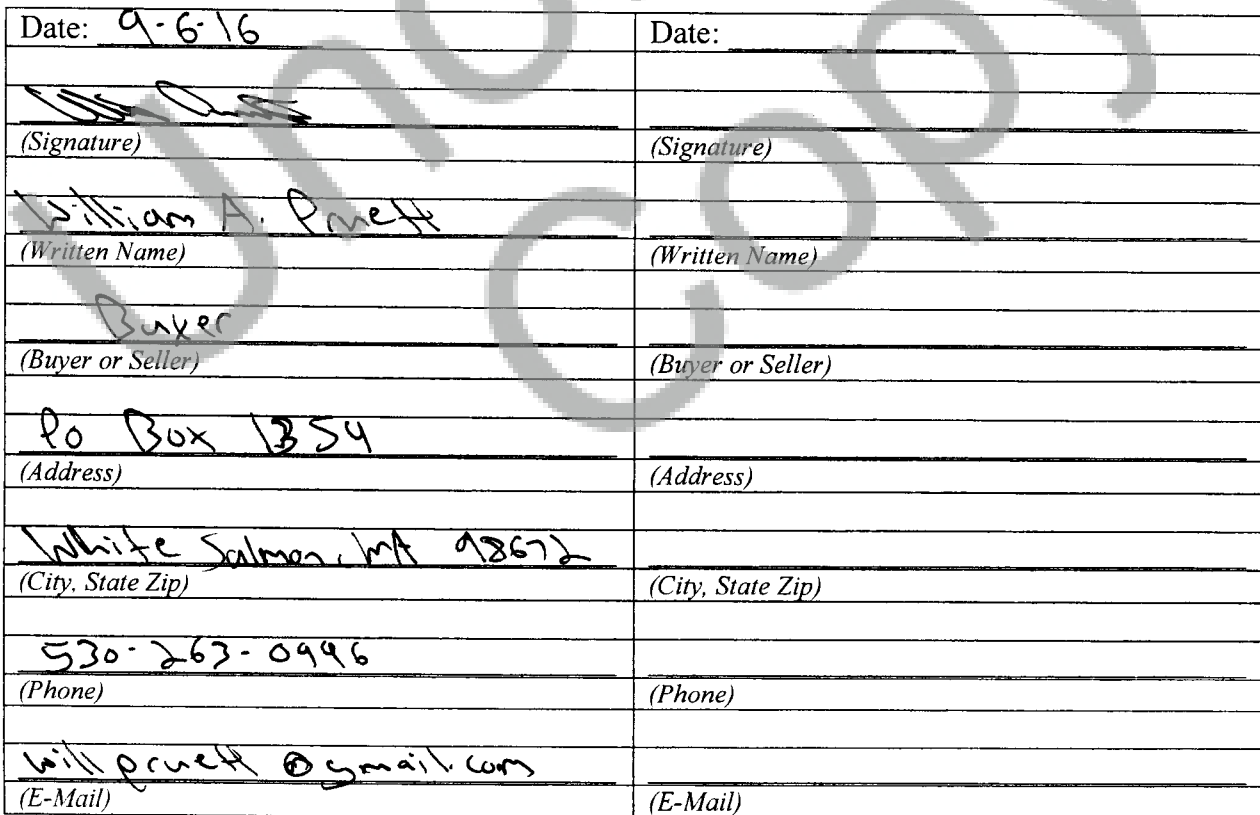 Date: 9-6-16
(Signature)
William A. Pruett
(Written Name)
Buyer
(Buyer or Seller)
Po Box 1354
(Address)
White Salmon, WA 98672
(City, State Zip)
530-263-0996
(Phone)
willpruett@gmail.com
(E-Mail)
Date:
(Signature)
(Written Name)
(Buyer or Seller)
(Address)
(City, State Zip)
(Phone)
(E-Mail)
Copy